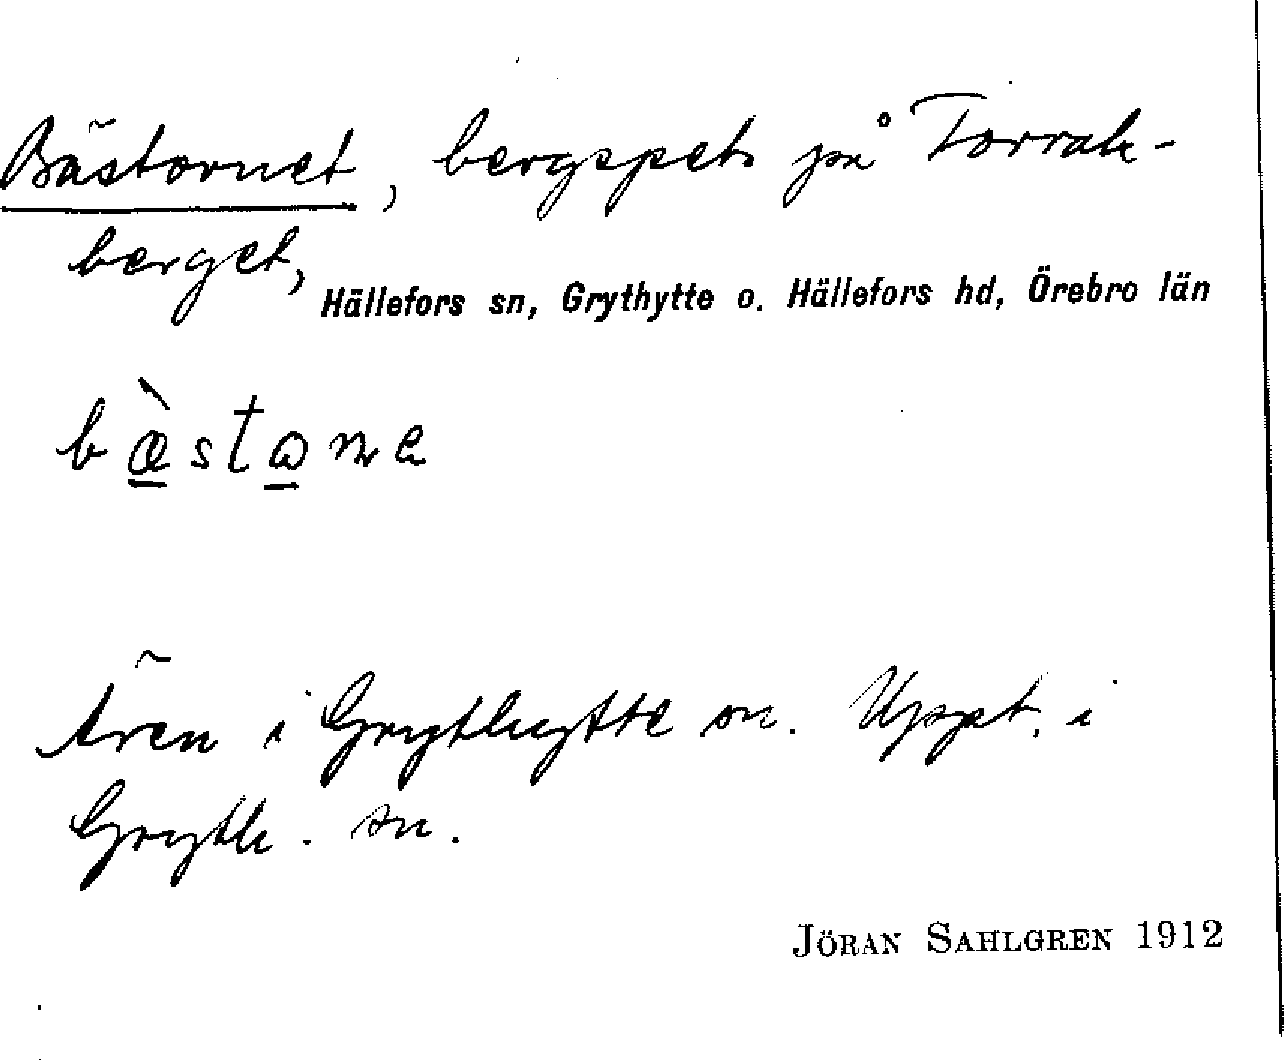 Bästornet, bergspets på Torrak-
berget,
Hällefors sn, Grythytte o. Hällefors hd, Örebro län
bæ̀stɷne
Ären i Grythytte sn. Uppt. i
Grytth. sn.
JÖRAN SAHLGREN 1912